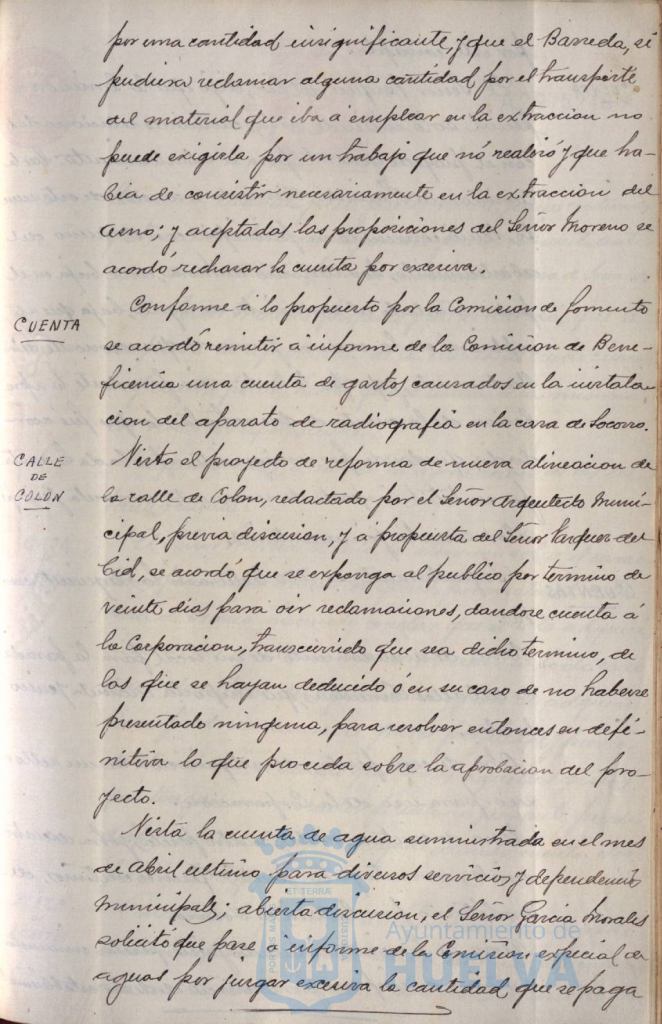 por una cantidad insignificante, y que el Barreda, si
pudiera reclamar alguna cantidad por el transporte
del material que iba á emplear en la extraccion no
puede exigirla por un trabajo que nó realizó y que ha-
bia de consistir necesariamente en la extraccion del
asno; y aceptadas las proposiciones del Señor Moreno se
acordó rechazar la cuenta por excesiva.
CUENTA
Conforme á lo propuesto por la Comision de fomento
se acordó remitir á informe de la Comision de Bene-
ficencia una cuenta de gastos causados en la instala-
cion del aparato de radiografia en la casa de Socorro.
CALLE
DE
COLON
Visto el proyecto de reforma de nueva alineacion de
la calle de Colon, redactado por el Señor Arquitecto Muni-
cipal, previa discusion, y á propuesta del Señor Vazquez del
Cid, se acordó que se exponga al publico por termino de
veinte dias para oir reclamaciones, dandose cuenta á
la Corporacion, transcurrido que sea dicho termino, de
las que se hayan deducido ó en su caso de no haberse
presentado ninguna, para resolver entonces en defi-
nitiva lo que proceda sobre la aprobacion del pro-
yecto.
Vista la cuenta de agua suministrada en el mes
de Abril ultimo para diversos servicios y dependencias
Municipales; abierta discusion, el Señor Garcia Morales
solicitó que pase á informe de la Comision especial de
aguas por juzgar excesiva la cantidad que se paga
Ayuntamiento de
HUELVA